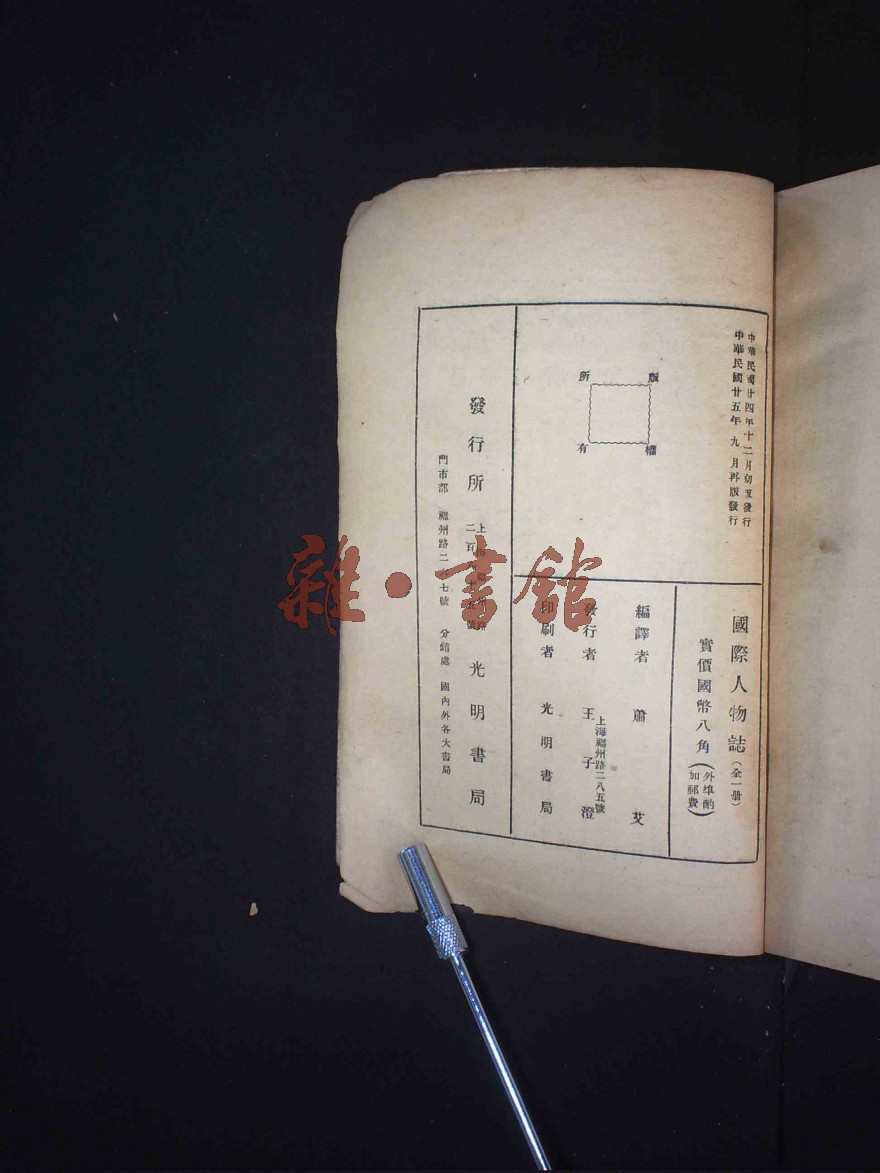 中華民國廿四年十二月初版發行
中華民國廿五年九月再版發行
版權
所有
國際人物誌(全一册)
實價國幣八角(外埠酌加郵費)
編譯者 蕭艾
發行者 王子澄
上海福州路二八五號
印刷者 光明書局
發行所 上海福州路二百八十五號 光明書局
門市部 福州路二八七號 分銷處 國內外各大書局
雜·書館